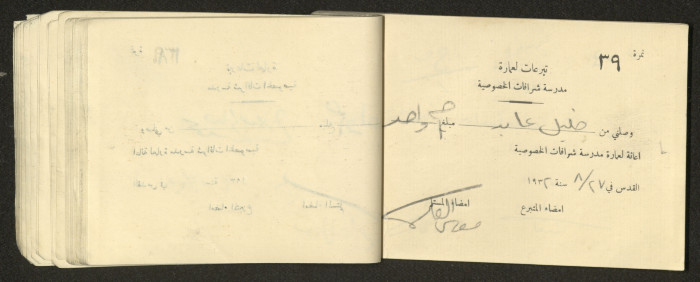 نمرة ٣٩
تبرعات لعمارة
مدرسة شرافات الخصوصية
وصلني من خليل عابد مبلغ واحد
اعانة لعمارة مدرسة شرافات الخصوصية
القدس في ٨/٢٧ سنة ١٩٣٢
امضاء المستلم امضاء المتبرع